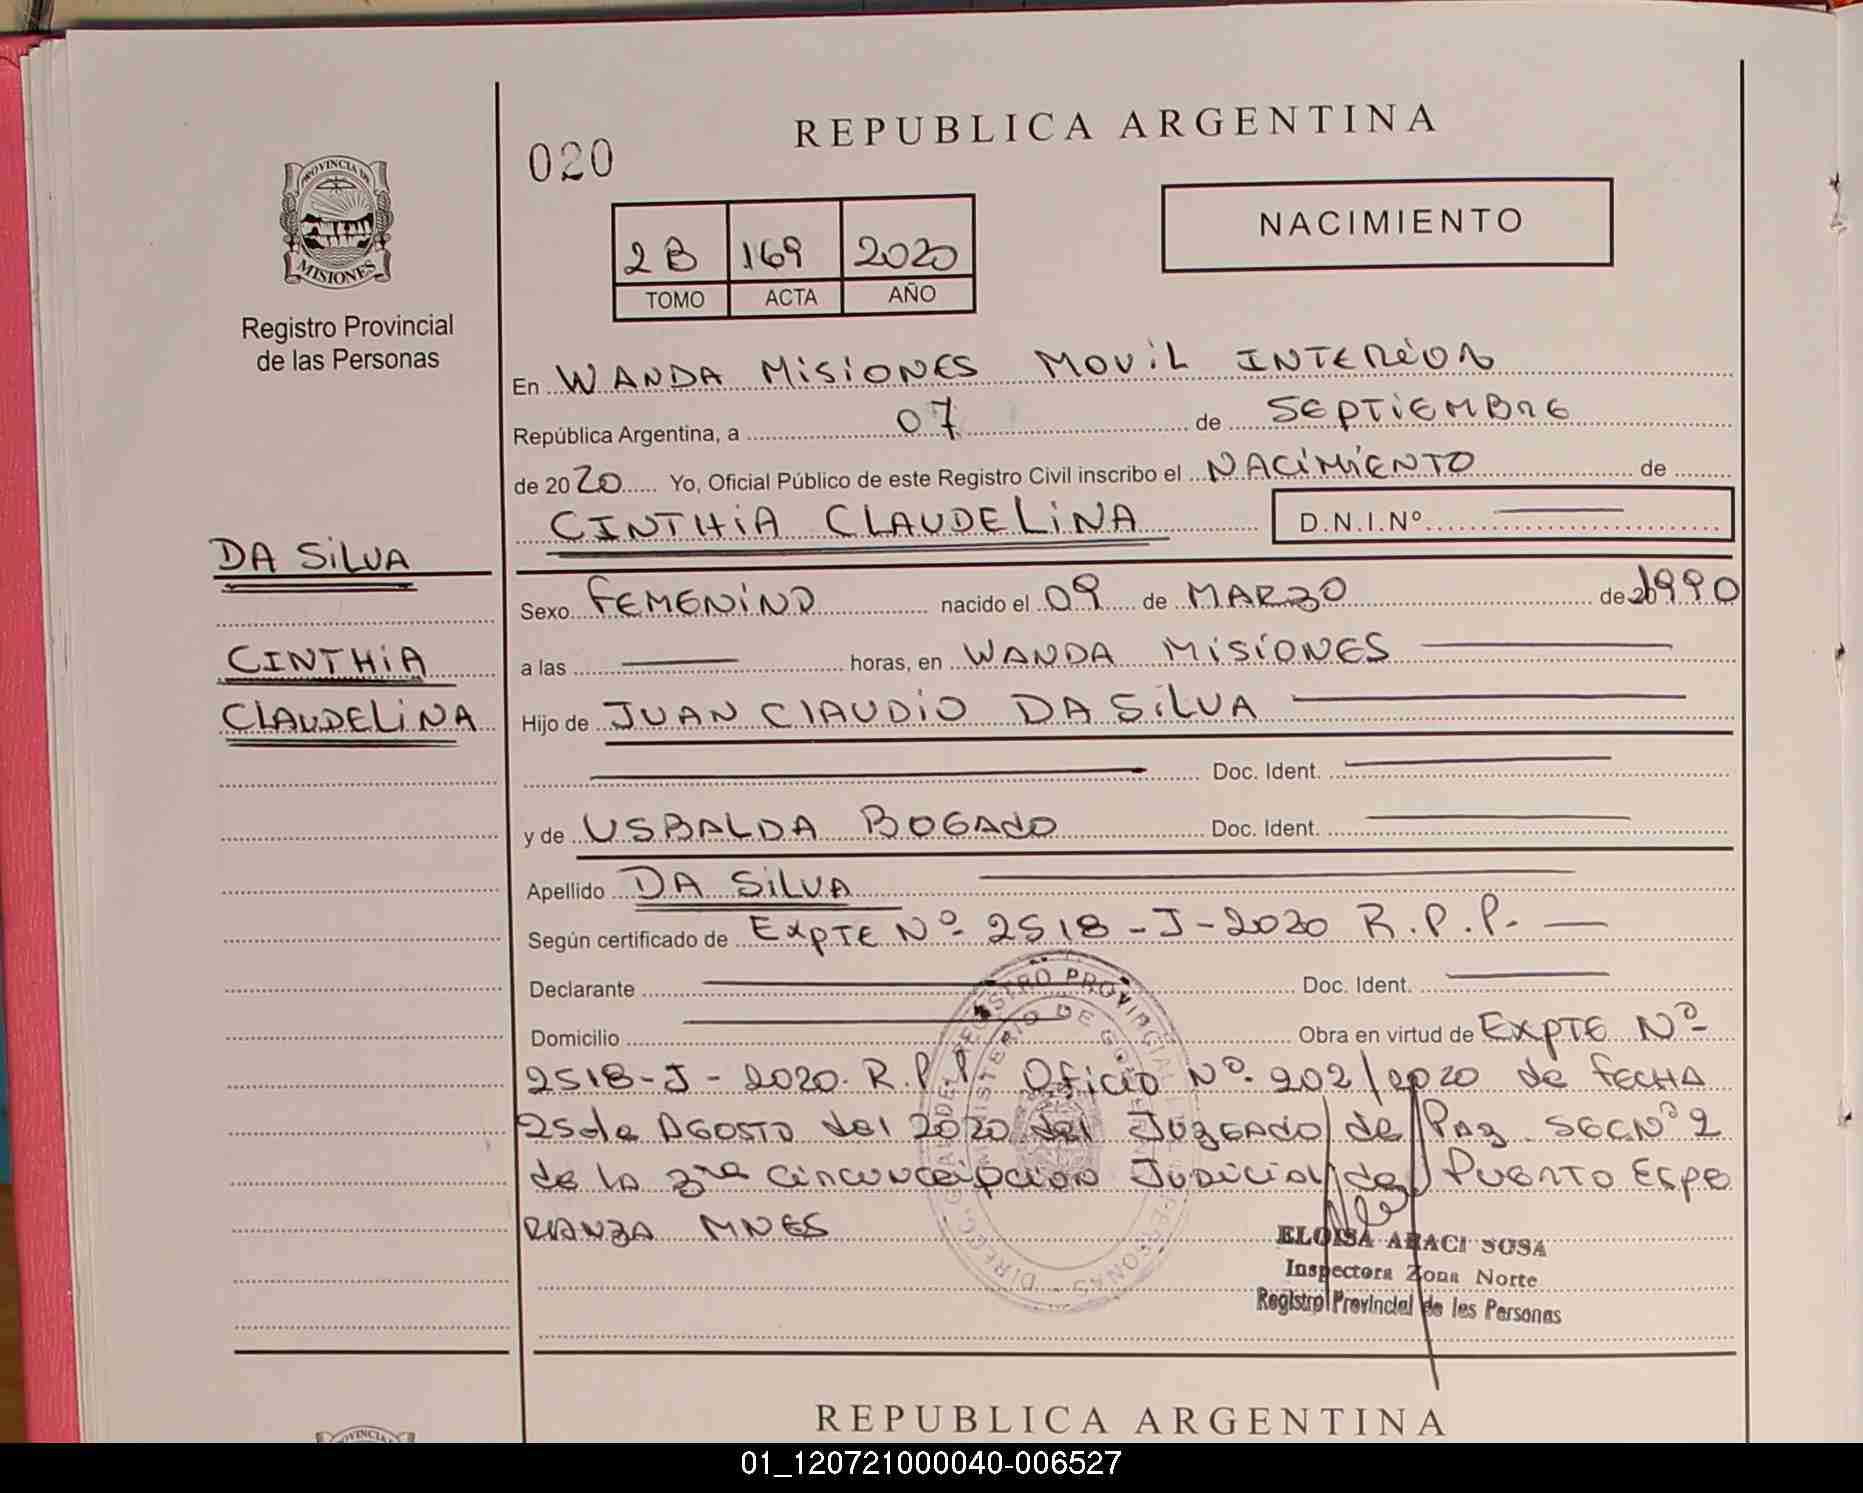 REPUBLICA ARGENTINA
020
PROVINCIA DE
MISIONES
Registro Provincial
de las Personas
2B 169 2020
TOMO ACTA AÑO
NACIMIENTO
En WANDA MISIONES MOVIL INTERIOR
República Argentina, a 07 de SEPTIEMBRE
de 2020 Yo, Oficial Público de este Registro Civil inscribo el NACIMIENTO de
CINTHIA CLAUDELINA D.N.I.Nº
DA SILVA
Sexo FEMENINO nacido el 09 de MARZO de 1990
CINTHIA
a las horas, en WANDA MISIONES
CLAUDELINA
Hijo de JUAN CLAUDIO DA SILVA
Doc. Ident.
y de USBALDA BOGADO Doc. Ident.
Apellido DA SILVA
Según certificado de EXPTE Nº 2518-J-2020 R.P.P.
Declarante Doc. Ident.
Domicilio Obra en virtud de EXPTE Nº
2518-J-2020. R.P.P. Oficio Nº 202/2020 de FECHA
25 de AGOSTO del 2020 del JUZGADO de PAZ SEC Nº 2
de la 3ra Circunceipcion Judicial de PUERTO ESPE
RANZA MNES
REGISTRO PROVINCIAL
MINISTERIO DE
ELOISA ARACI SOSA
Inspectora Zona Norte
Registro Provincial de les Personas
REPUBLICA ARGENTINA
01_120721000040-006527